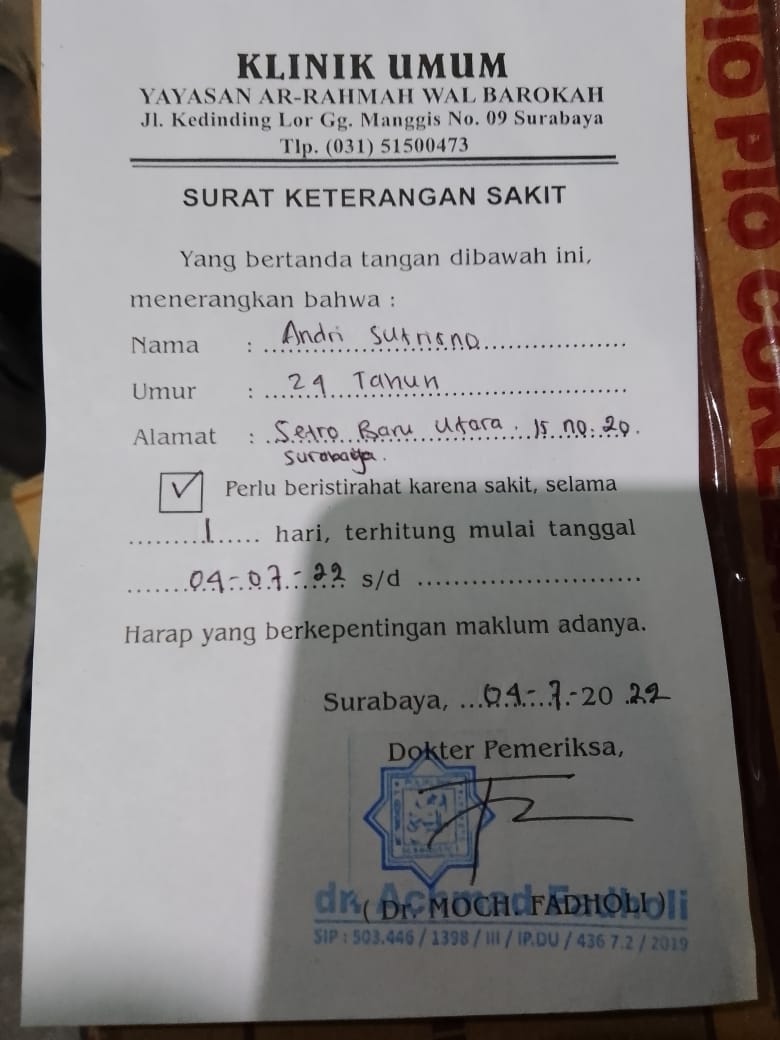 KLINIK UMUM
YAYASAN AR-RAHMAH WAL BAROKAH
Jl. Kedinding Lor Gg. Manggis No. 09 Surabaya
Tlp. (031) 51500473
SURAT KETERANGAN SAKIT
Yang bertanda tangan dibawah ini,
menerangkan bahwa :
Nama : Andri Sutrisno
Umur : 24 Tahun
Alamat : Setro Baru Utara 15 no. 20.
Surabaya.
✓ Perlu beristirahat karena sakit, selama
1 hari, terhitung mulai tanggal
04-07-22 s/d
Harap yang berkepentingan maklum adanya.
Surabaya, 04-7-2022
Dokter Pemeriksa,
dr. Achmad Fadholi
( Dr. MOCH. FADHOLI )
SIP : 503.446 / 1398 / III / IP.DU / 436 7.2 / 2019
PIO PIO